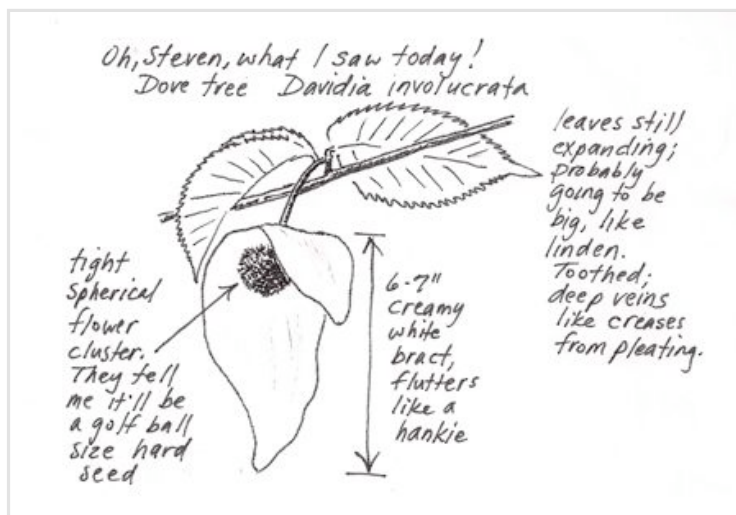 Oh, Steven, what I saw today!
Dove tree Davidia involucrata
leaves still
expanding;
probably
going to be
big, like
linden.
Toothed;
deep veins
like creases
from pleating.
tight
spherical
flower
cluster.
They tell
me it'll be
a golf ball
size hard
seed
6-7"
creamy
white
bract,
flutters
like a
hankie